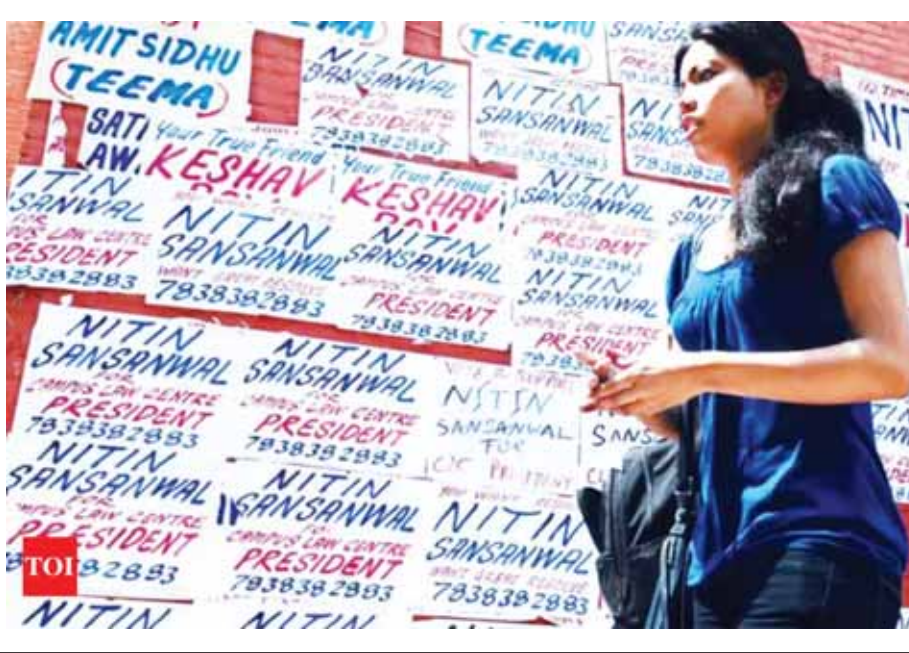 AMIT SIDHU
(TEEMA)
TEEMA
NITIN
SANSANWAL
CAMPUS LAW CENTRE
PRESIDENT
7838382883
NITIN
SANSANWAL
NITIN
SANS
7838382883
NIT
SATI
AW
Your True Friend
KESHAV
Your True Friend
KESHAV
ITIN
SANWAL
FOR
PUS LAW CENTRE
RESIDENT
838382883
NITIN
SANSANWAL
WANT GREAT RESOLVE
7838382883
NITIN
SANSANWAL
CAMPUS LAW CENTRE
PRESIDENT
7838382883
NITIN
SANSANWAL
FOR
CAMPUS LAW CENTRE
PRESIDENT
7838382883
NITIN
SANSANWAL
FOR
CAMPUS LAW CENTRE
PRESIDENT
7838
NIT
SANS
NITIN
SANSANWAL
FOR
CAMPUS LAW CENTRE
PRESIDENT
7838382883
NITIN
SANSANWAL
FOR
CAMPUS LAW CENTRE
PRESIDENT
7838382883
NITIN
SANSANWAL
FOR
SANS
NITIN
SANSANWAL
FOR
CAMPUS LAW CENTRE
PRESIDENT
82883
NITIN
SANSANWAL
FOR
CAMPUS LAW CENTRE
PRESIDENT
7838382883
NITIN
SANSANWAL
WANT GREAT RESOLVE
7838382883
TOI
NITIN
NITIN